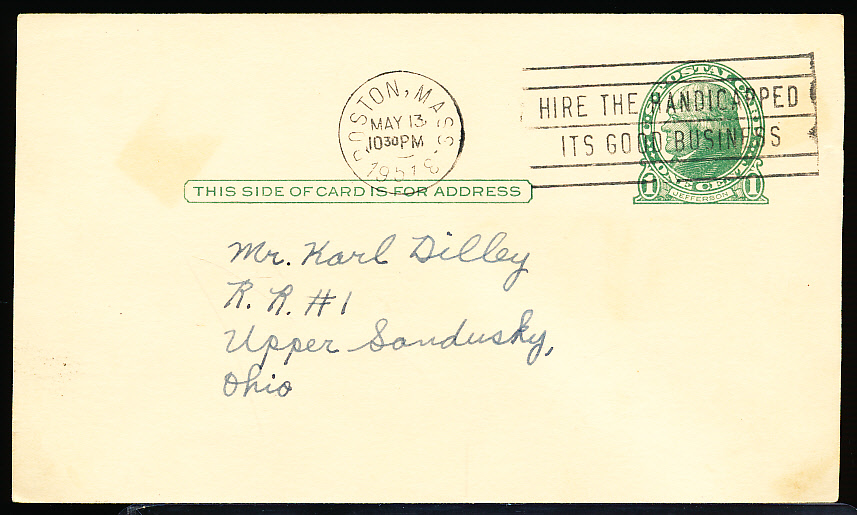 BOSTON, MASS.
MAY 13
10 30 PM
1951
HIRE THE HANDICAPPED
ITS GOOD BUSINESS
THIS SIDE OF CARD IS FOR ADDRESS
1 JEFFERSON 1
Mr. Karl Dilley
R. R. #1
Upper Sandusky,
Ohio